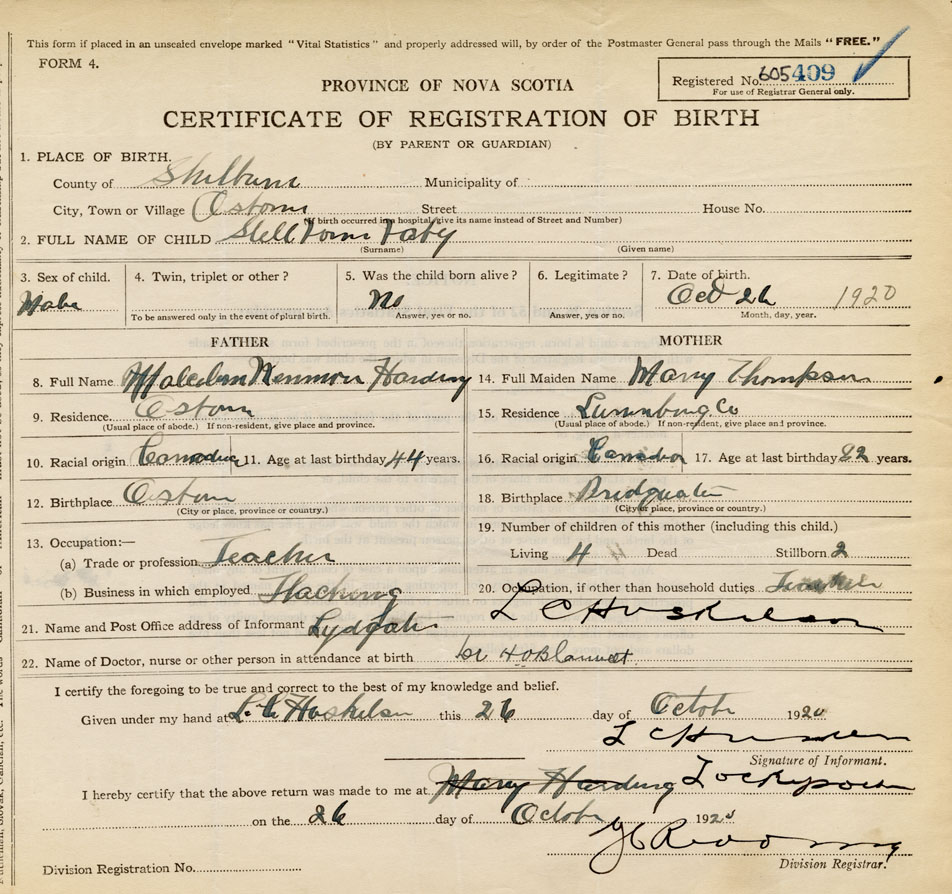 This form if placed in an unsealed envelope marked "Vital Statistics" and properly addressed will, by order of the Postmaster General pass through the Mails "FREE."
FORM 4.
Registered No. 605409
For use of Registrar General only.
PROVINCE OF NOVA SCOTIA
CERTIFICATE OF REGISTRATION OF BIRTH
(BY PARENT OR GUARDIAN)
1. PLACE OF BIRTH.
County of Shelburne Municipality of
City, Town or Village Osborne Street House No.
(If birth occurred in a hospital, give its name instead of Street and Number)
2. FULL NAME OF CHILD Still Born Baby
(Surname) (Given name)
3. Sex of child. 4. Twin, triplet or other? 5. Was the child born alive? 6. Legitimate? 7. Date of birth.
Male No Oct 26 1920
To be answered only in the event of plural birth. Answer, yes or no. Answer, yes or no. Month, day, year.
FATHER MOTHER
8. Full Name Malcolm Harding 14. Full Maiden Name Mary Thompson
9. Residence. Osborn 15. Residence Lunenburg Co
(Usual place of abode.) If non-resident, give place and province. (Usual place of abode.) If non-resident, give place and province.
10. Racial origin Canadian 11. Age at last birthday 44 years. 16. Racial origin 17. Age at last birthday years.
12. Birthplace Osborn 18. Birthplace Bridgwater
(City or place, province or country.) (City or place, province or country.)
19. Number of children of this mother (including this child.)
13. Occupation:—
(a) Trade or profession Teacher Living 4 Dead Stillborn 2
(b) Business in which employed Teaching 20. Occupation, if other than household duties
21. Name and Post Office address of Informant Lydgate L C Huskelson
22. Name of Doctor, nurse or other person in attendance at birth Dr
I certify the foregoing to be true and correct to the best of my knowledge and belief.
Given under my hand at L. C. Huskelson this 26 day of Octobr 1920
Signature of Informant.
I hereby certify that the above return was made to me at Mary Harding Lockeport
on the 26 day of October 192
Division Registration No. Division Registrar.